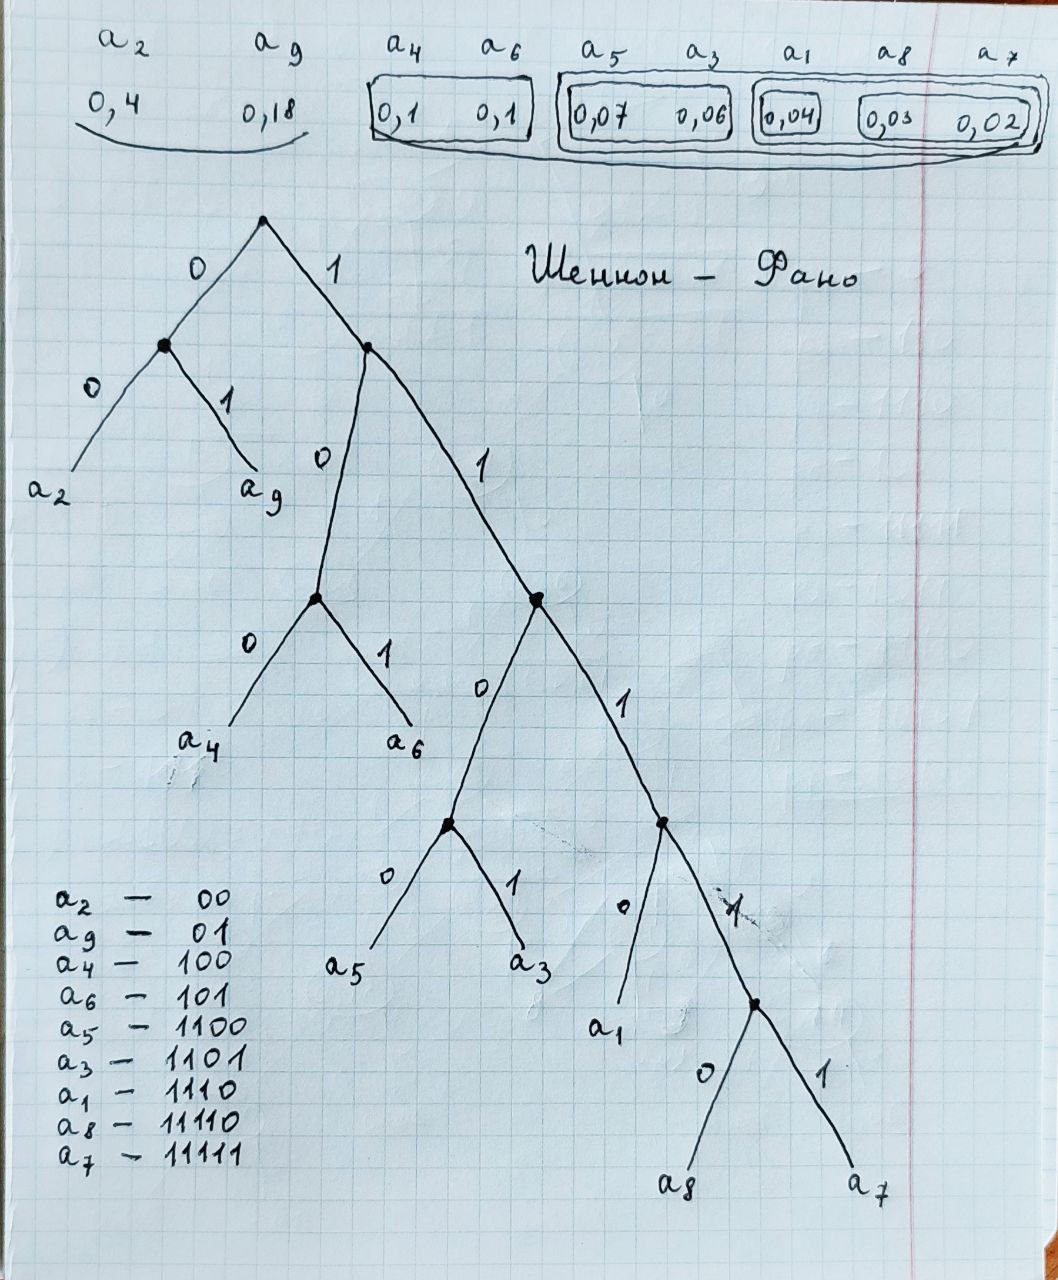 a2 a9 a4 a6 a5 a3 a1 a8 a7
0,4 0,18 0,1 0,1 0,07 0,06 0,04 0,03 0,02
Шеннон - Фано
0 1
0 1
0 1
a2 a9
0 1
0 1
a4 a6
0 1
0 1
a5 a3
a1
0 1
a8 a7
a2 - 00
a9 - 01
a4 - 100
a6 - 101
a5 - 1100
a3 - 1101
a1 - 1110
a8 - 11110
a7 - 11111